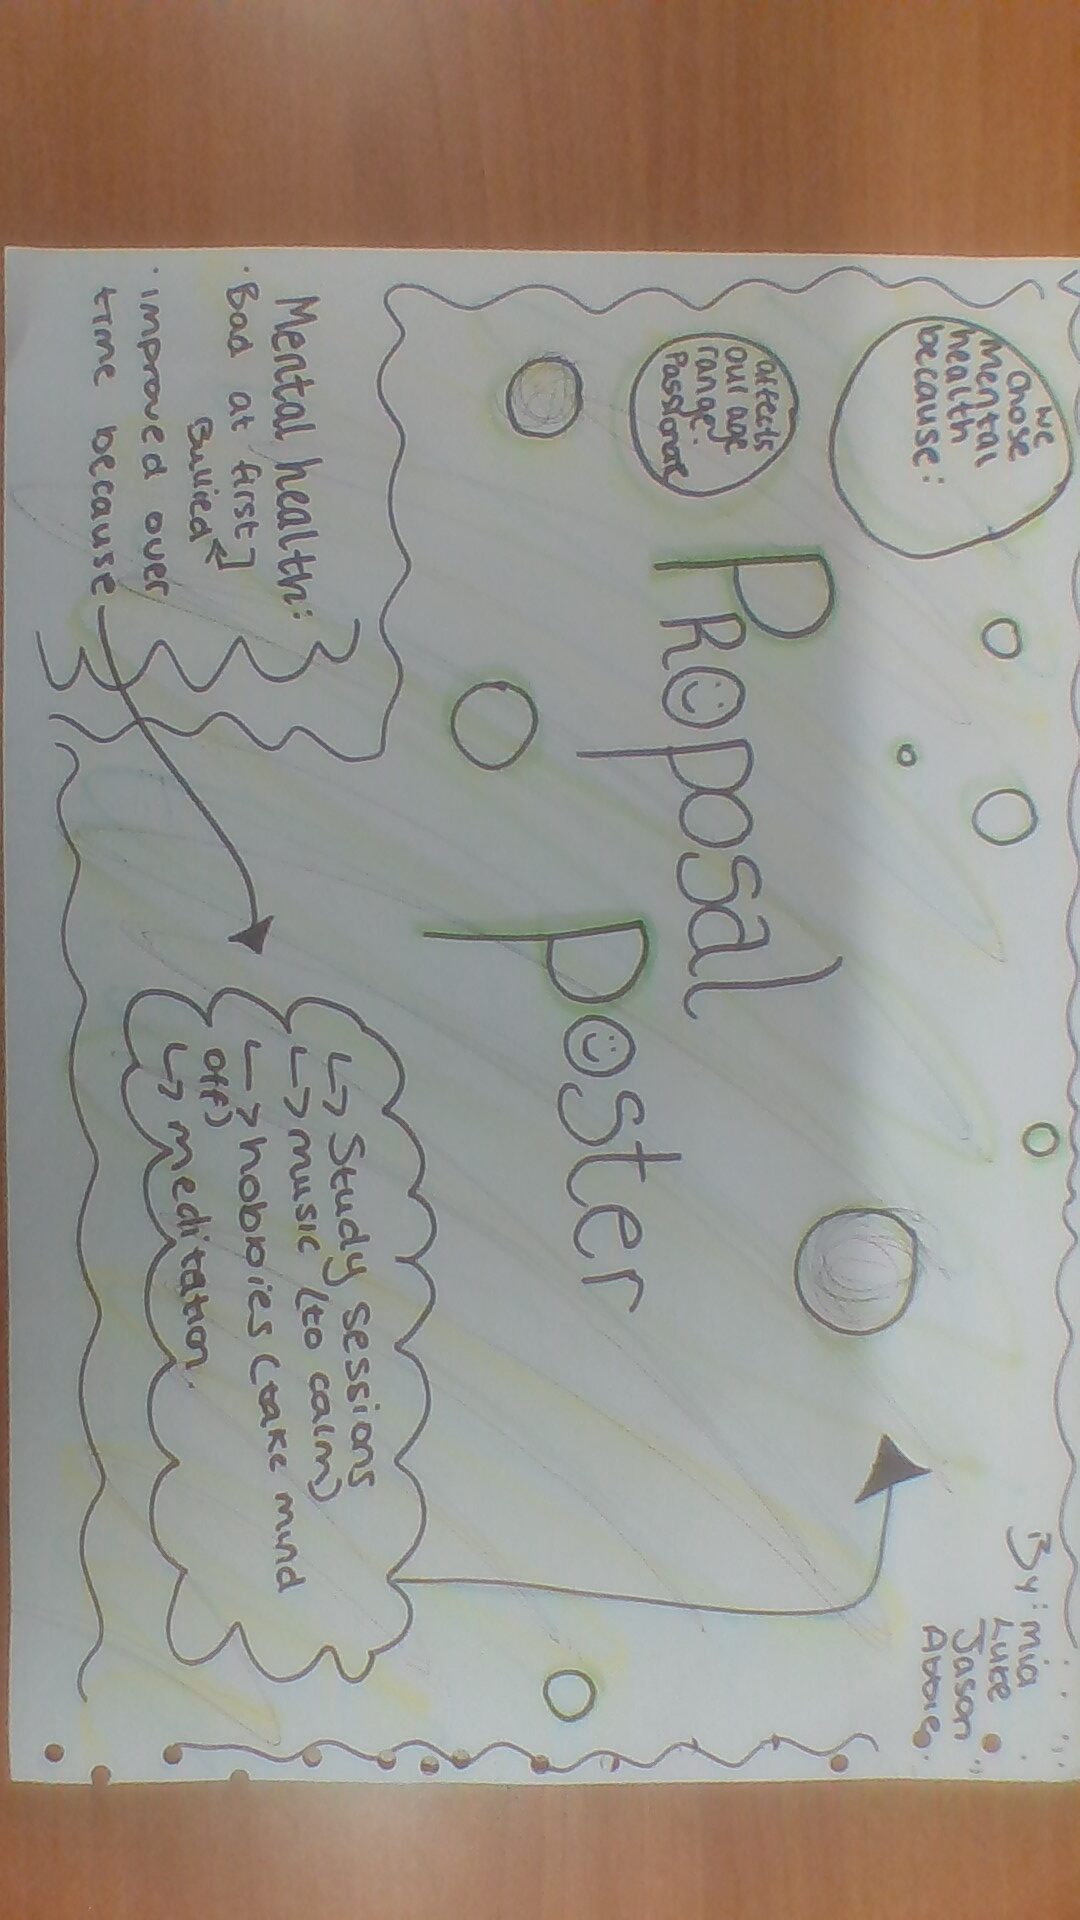 we
chose
Mental
health
because:
affects
our age
range.
Passionate
Proposal
Poster
By: mia
Luke
Jason
Abbie
Mental health:
· Bad at first
Bullied
· improved over
time because
↳ Study sessions
↳ music (to calm)
↳ hobbies (take mind
off)
↳ meditation.